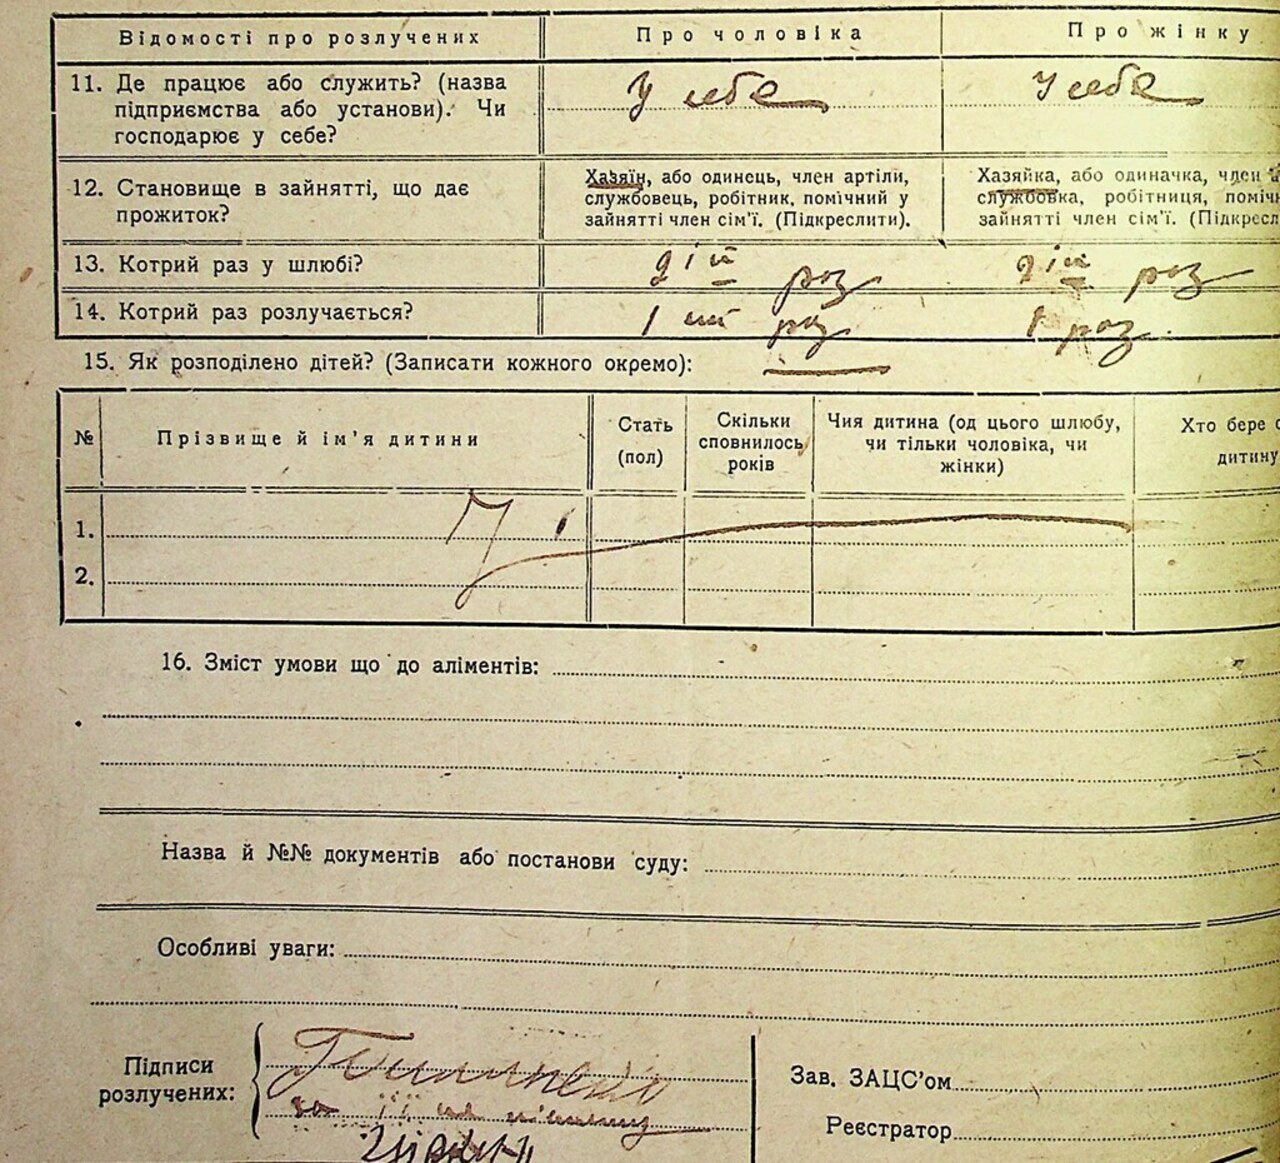 Відомості про розлучених
Про чоловіка
Про жінку
11. Де працює або служить? (назва
підприємства або установи). Чи
господарює у себе?
У себе
У себе
12. Становище в зайнятті, що дає
прожиток?
Хазяїн, або одинець, член артіли,
службовець, робітник, помічний у
зайнятті член сім'ї. (Підкреслити).
Хазяйка, або одиначка, член
службовка, робітниця,
зайнятті член сім'ї.
13. Котрий раз у шлюбі?
2ій раз
2ій раз
14. Котрий раз розлучається?
1 ий раз
1 раз
15. Як розподілено дітей? (Записати кожного окремо):
№
Прізвище й ім'я дитини
Стать
(пол)
Скільки
сповнилось
років
Чия дитина (од цього шлюбу,
чи тільки чоловіка, чи
жінки)
Хто бере
дитину
1.
2.
16. Зміст умови що до аліментів:
Назва й №№ документів або постанови суду:
Особливі уваги:
Підписи
розлучених:
за її
Зав. ЗАЦС'ом
Реєстратор